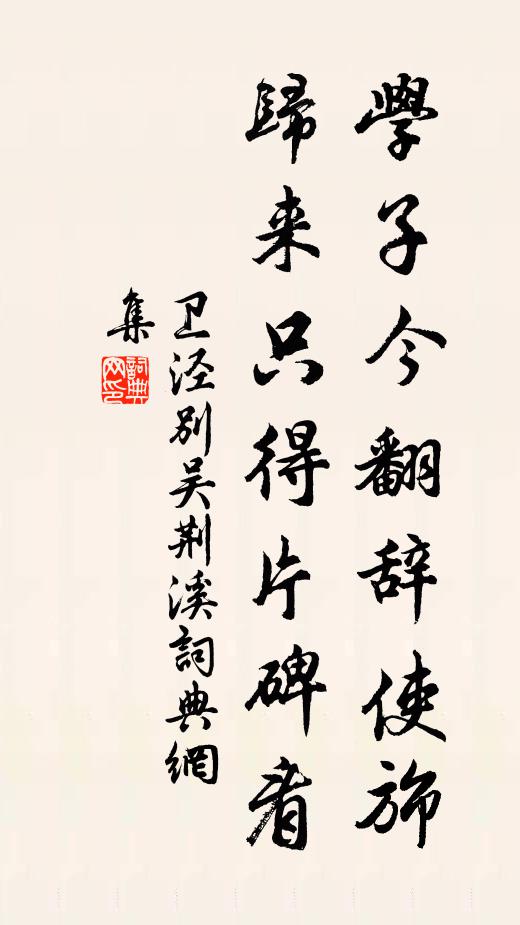 學子今翻辞使旆
歸来只得片碑看
卫泾别吴荆溪詞典網
集
詞典网印